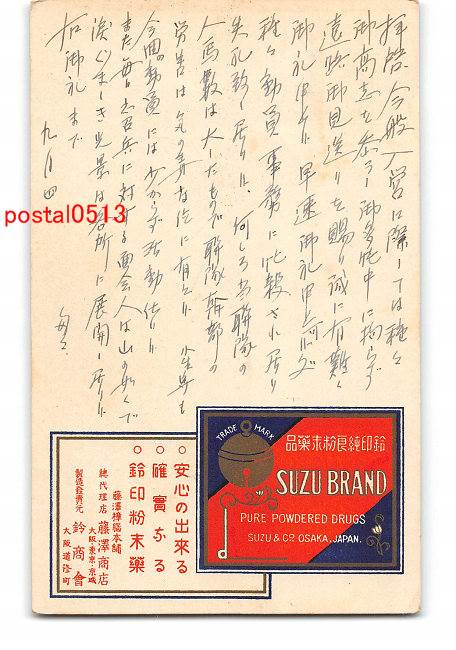 拝啓 今般入営に際しては種々
御高志を忝うし御多忙中に拘らず
遠路御見送りを賜り誠に有難く
御礼申
早速御礼申上可く
種々動員事務に忙殺され居り
失礼致し居り候 何しろ当聯隊の
人馬数は大したもので聯隊幹部の
労苦は気の毒な位に有之候 小生等も
今回の動員には少からず活動仕り候
また毎日応召兵に対する面会人は山の如くで
涙ぐましき光景は各所に展開し居り候
右御礼まで
九月四
匆々
postal0513
TRADE MARK
鈴印純良粉末藥品
SUZU BRAND
PURE POWDERED DRUGS
SUZU & CO. OSAKA, JAPAN.
○安心の出來る
○確實なる
○鈴印粉末藥
藤澤樟腦本舗
總代理店 藤澤商店
大阪・東京・京城
製造發賣元 鈴商會
大阪道修町